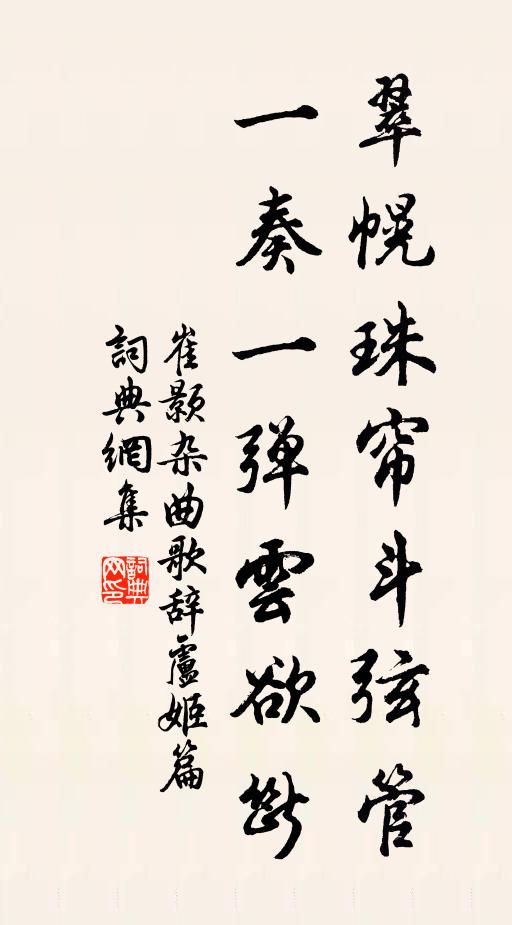 翠幌珠帘斗弦管
一奏一弹雲欲断
崔颢杂曲歌辞盧姬篇
詞典網集
詞典网印